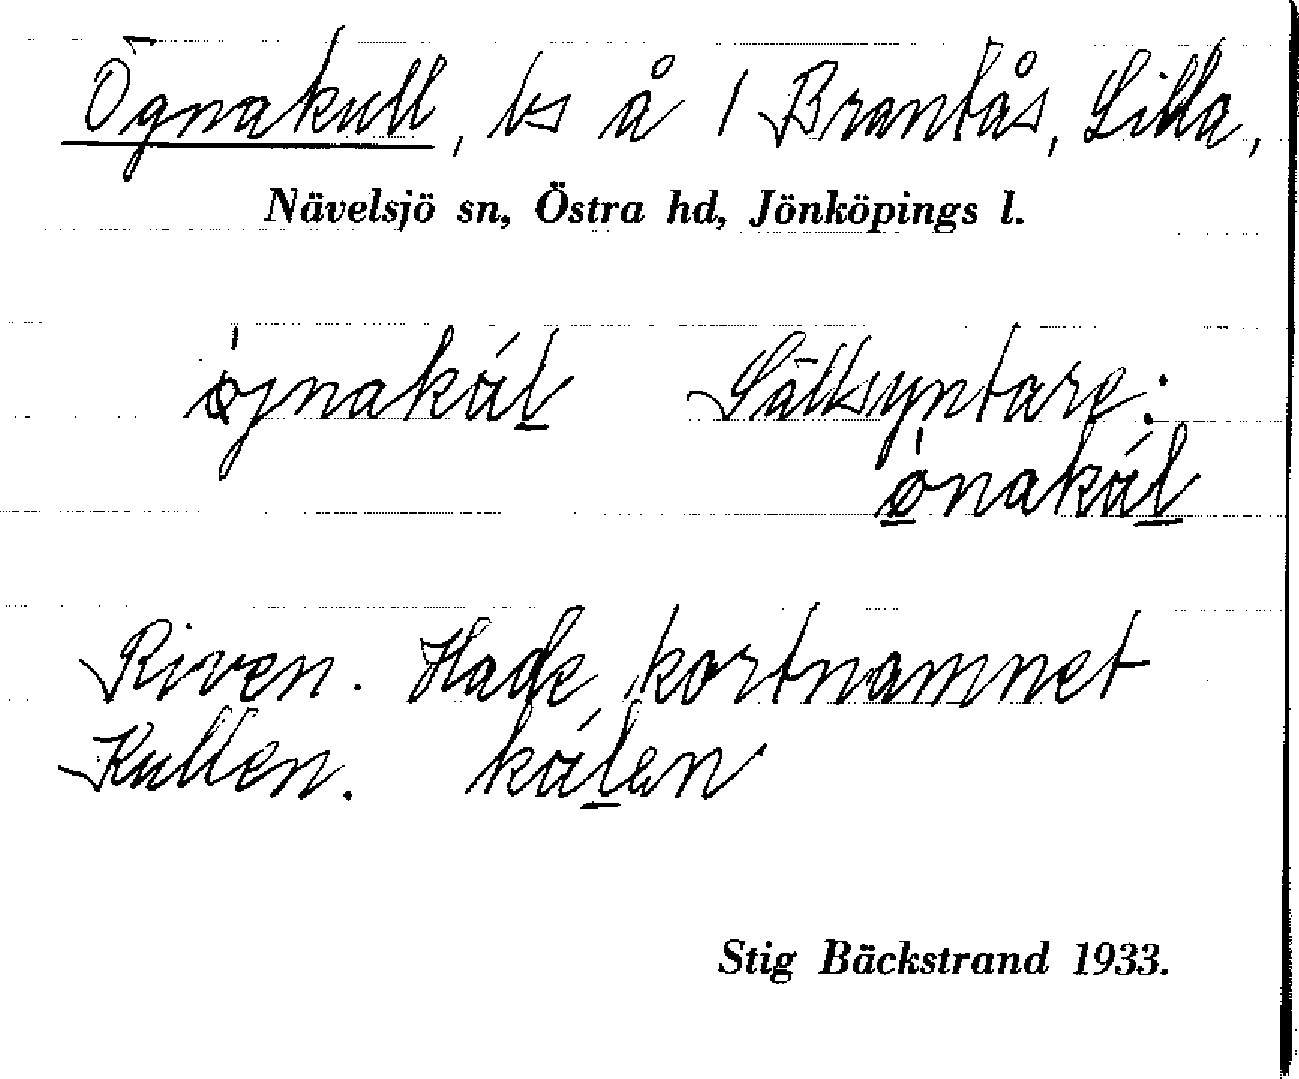 Ögnakull, ls å 1 Brantås, Lilla,
Nävelsjö sn, Östra hd, Jönköpings l.
øjnakál Sällsyntare:
ønakál
Riven. Hade kortnamnet
Kullen. kálen
Stig Bäckstrand 1933.